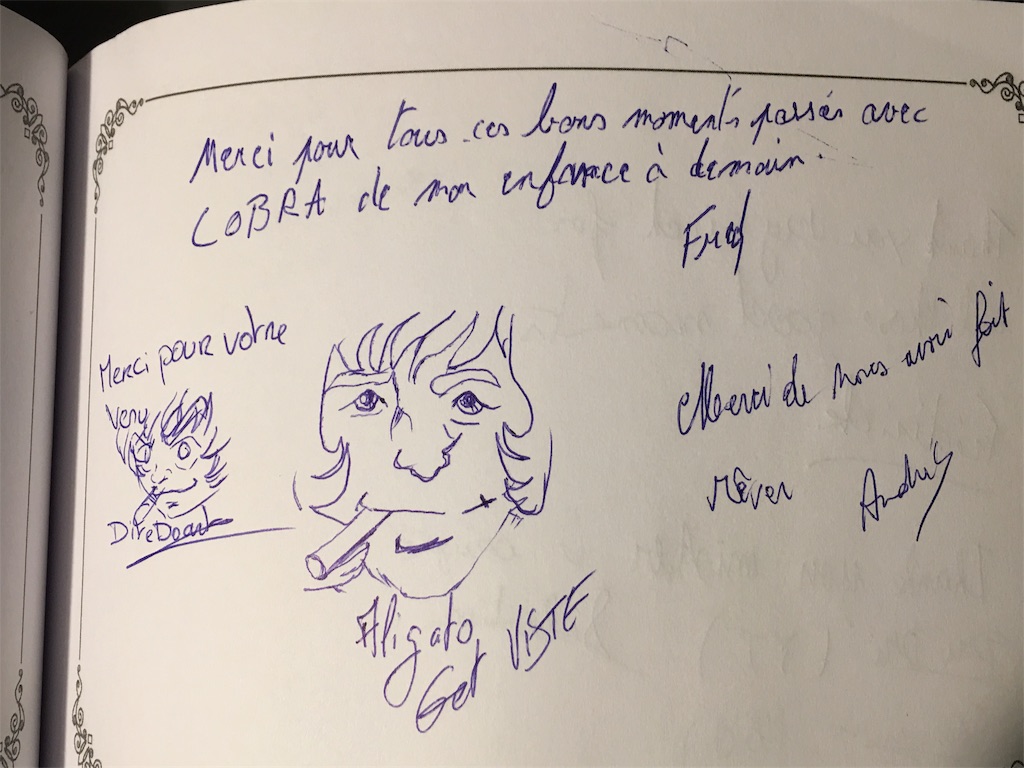 Merci pour tous ces bons moments passés avec
COBRA de mon enfance à demain.
Fred
Merci pour votre
Very
Merci de nous avoir fait
rêver
Aligato
Get